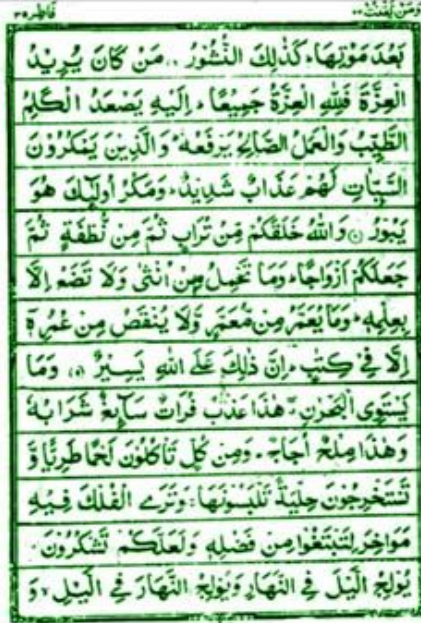 وَمَنْ يَّقْنُتْ ٢٢ فَاطِر ٣٥
بَعْدَ مَوْتِهَا ؕ كَذٰلِكَ النُّشُوْرُ ۝ مَنْ كَانَ يُرِيْدُ
الْعِزَّةَ فَلِلّٰهِ الْعِزَّةُ جَمِيْعًا ؕ اِلَيْهِ يَصْعَدُ الْكَلِمُ
الطَّيِّبُ وَالْعَمَلُ الصَّالِحُ يَرْفَعُهٗ ؕ وَالَّذِيْنَ يَمْكُرُوْنَ
السَّيِّاٰتِ لَهُمْ عَذَابٌ شَدِيْدٌ ؕ وَمَكْرُ اُولٰٓئِكَ هُوَ
يَبُوْرُ ۝ وَاللّٰهُ خَلَقَكُمْ مِّنْ تُرَابٍ ثُمَّ مِنْ نُّطْفَةٍ ثُمَّ
جَعَلَكُمْ اَزْوَاجًا ؕ وَمَا تَحْمِلُ مِنْ اُنْثٰى وَلَا تَضَعُ اِلَّا
بِعِلْمِهٖ ؕ وَمَا يُعَمَّرُ مِنْ مُّعَمَّرٍ وَّلَا يُنْقَصُ مِنْ عُمُرِهٖٓ
اِلَّا فِيْ كِتٰبٍ ؕ اِنَّ ذٰلِكَ عَلَى اللّٰهِ يَسِيْرٌ ۝ وَمَا
يَسْتَوِى الْبَحْرٰنِ ۖ هٰذَا عَذْبٌ فُرَاتٌ سَآئِغٌ شَرَابُهٗ
وَهٰذَا مِلْحٌ اُجَاجٌ ؕ وَمِنْ كُلٍّ تَاْكُلُوْنَ لَحْمًا طَرِيًّا وَّ
تَسْتَخْرِجُوْنَ حِلْيَةً تَلْبَسُوْنَهَا ۚ وَتَرَى الْفُلْكَ فِيْهِ
مَوَاخِرَ لِتَبْتَغُوْا مِنْ فَضْلِهٖ وَلَعَلَّكُمْ تَشْكُرُوْنَ ۝
يُوْلِجُ الَّيْلَ فِى النَّهَارِ وَيُوْلِجُ النَّهَارَ فِى الَّيْلِ ۙ وَ